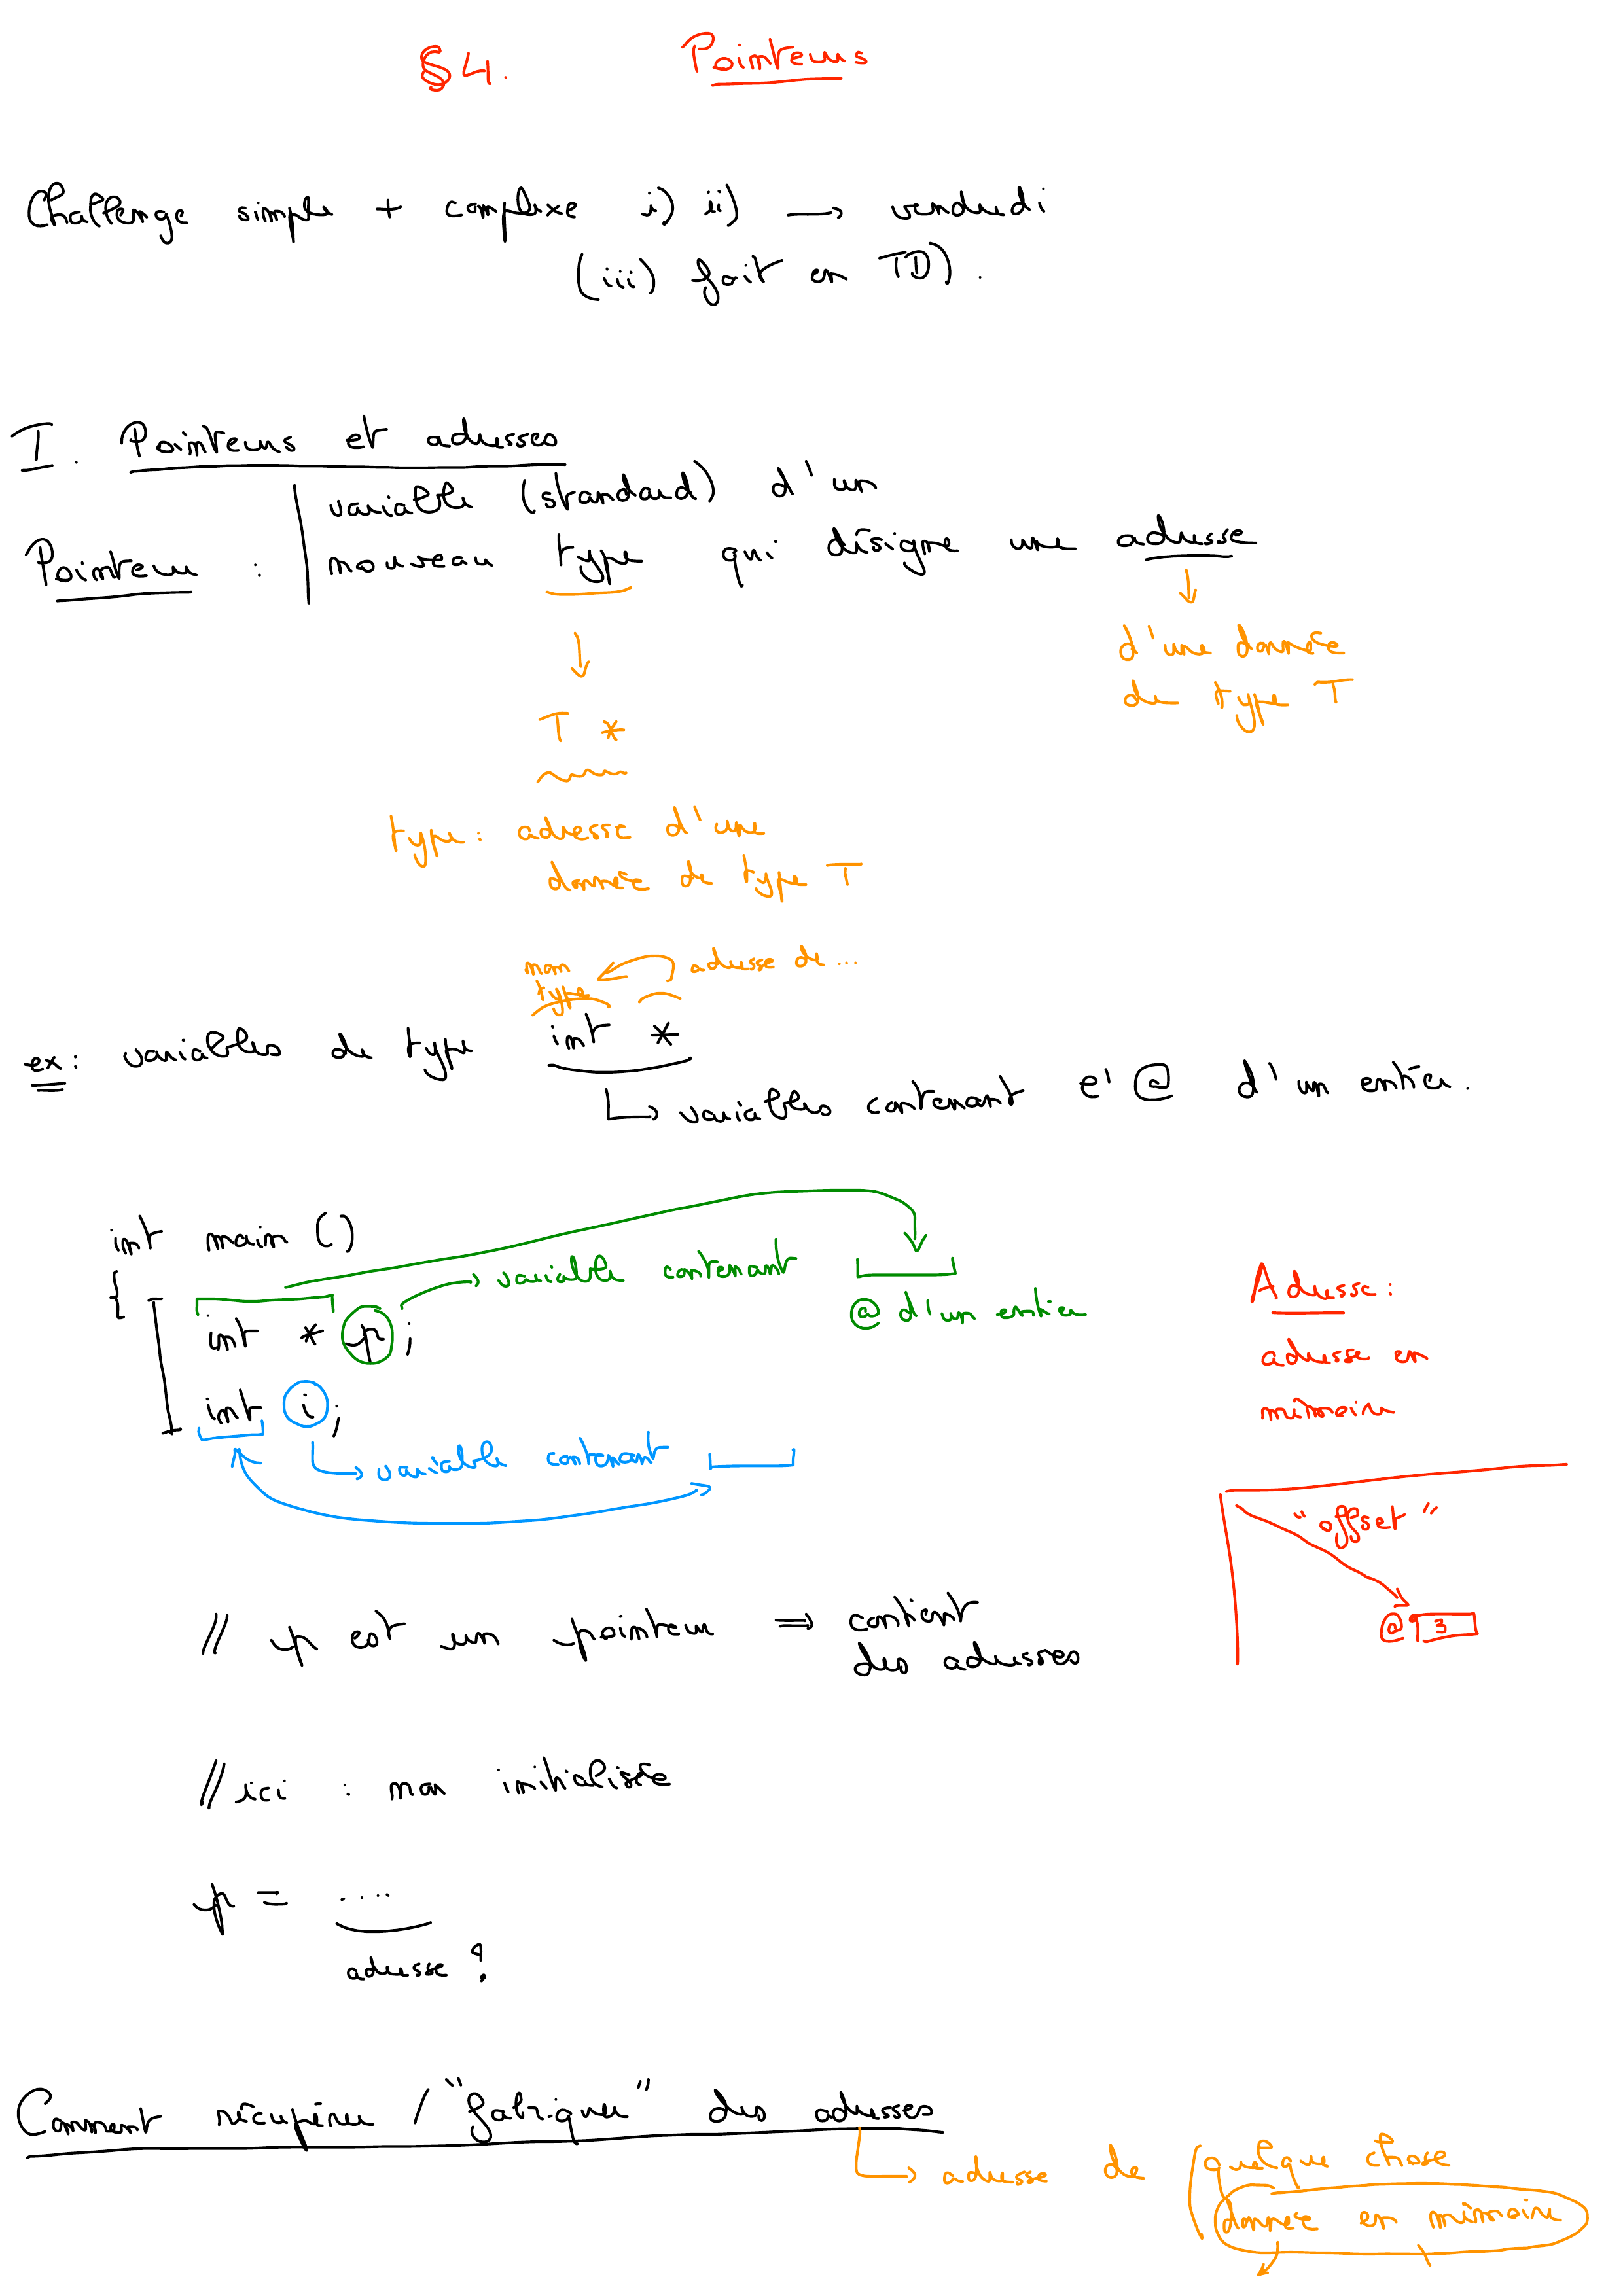 §4. Pointeurs
Challenge simple + complexe i) ii) → vendredi
(iii) fait en TD).
I. Pointeurs et adresses
Pointeur : variable (standard) d'un
nouveau type qui désigne une adresse
d'une donnée
de type T
T *
type : adresse d'une
donnée de type T
mon
type
adresse de ...
ex : variables de type int *
↳ variables contenant l'@ d'un entier.
int main ()
{
int * p ;
→ variable contenant
@ d'un entier
int i ;
↳ variable contenant
Adresse :
adresse en
mémoire
"offset"
@ 3
// p est un pointeur ⇒ contient
des adresses
// ici : non initialisée
p = ....
adresse ?
Comment récupérer / "fabriquer" des adresses
↳ adresse de quelque chose
donnée en mémoire